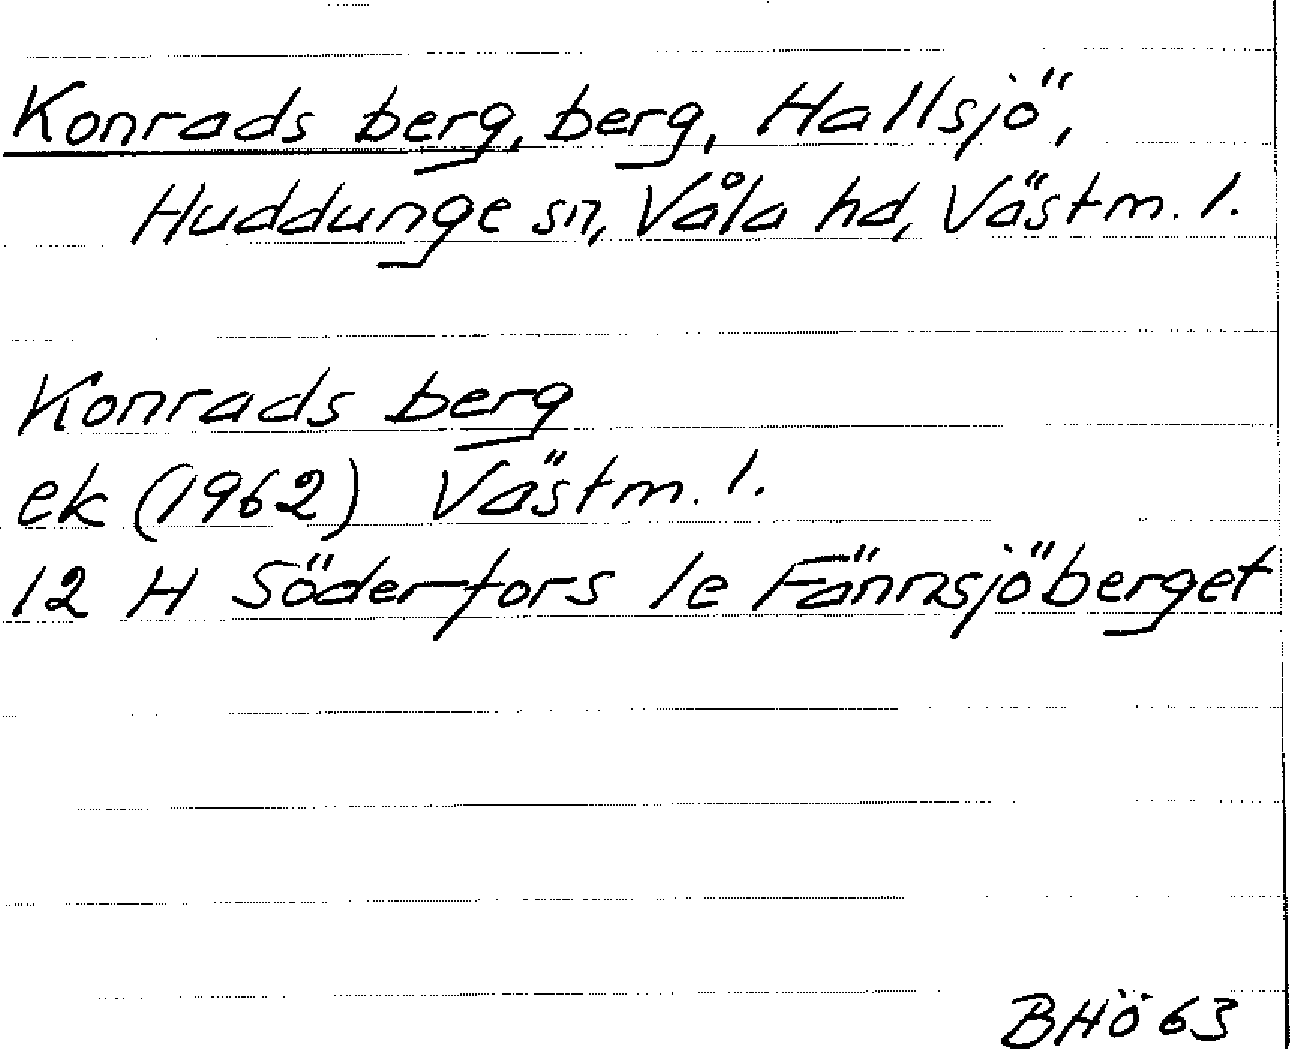 Konrads berg, berg, Hallsjö,
Huddunge sn, Våla hd, Västm. l.
Konrads berg
ek (1962) Västm. l.
12 H Söderfors 1e Fännsjöberget
BHÖ 63